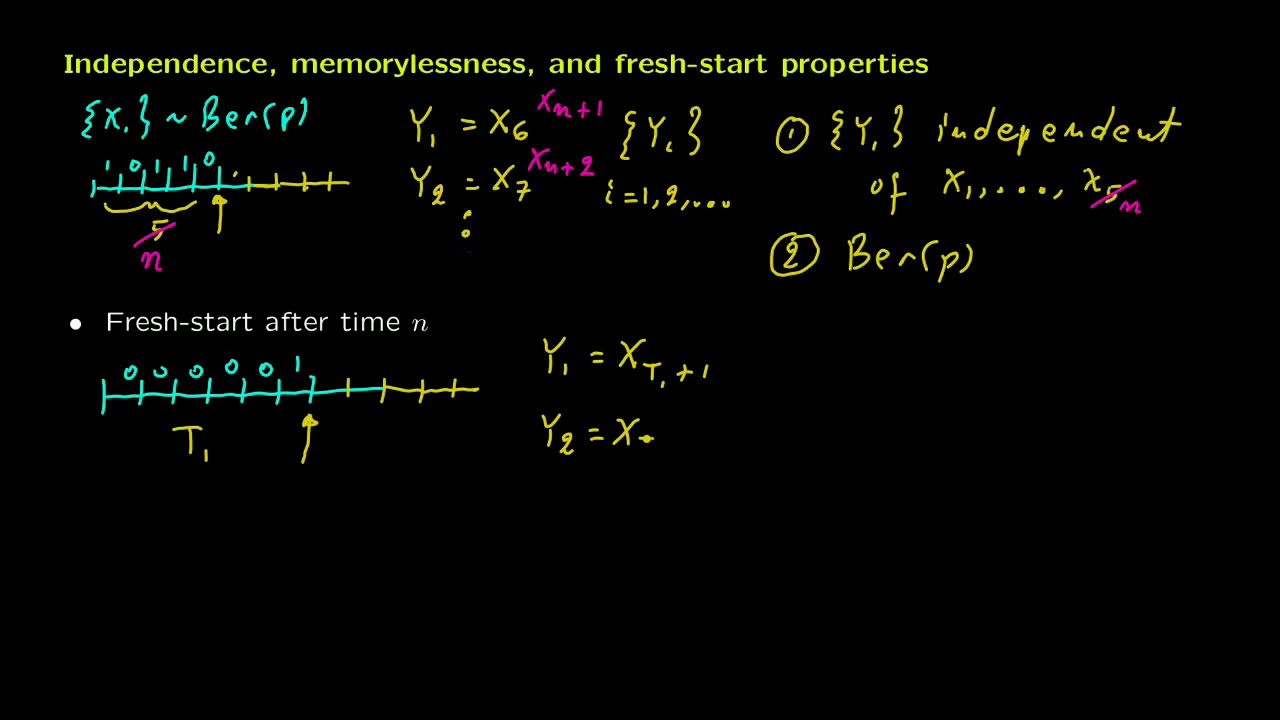 Independence, memorylessness, and fresh-start properties
{Xᵢ} ~ Ber(p)
1 0 1 1 0
5
n
Y₁ = X₆ Xₙ₊₁
Y₂ = X₇ Xₙ₊₂
⋮
{Yᵢ}
i=1,2,...
① {Yᵢ} independent
of X₁, ..., X₅ n
② Ber(p)
• Fresh-start after time n
0 0 0 0 0 1
T₁
Y₁ = X_T₁+1
Y₂ = X